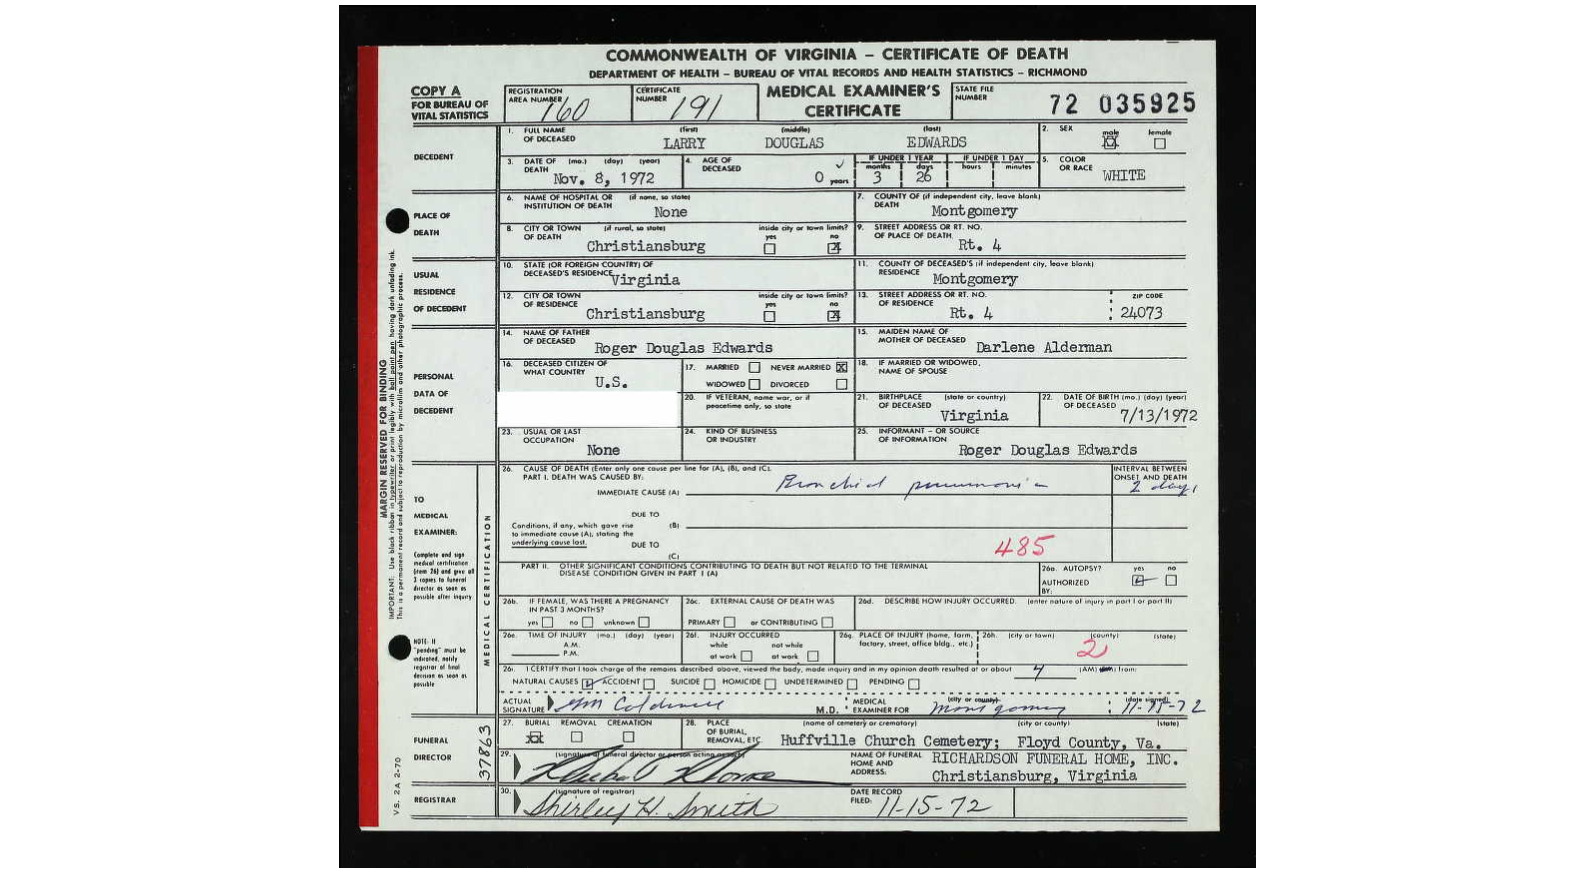 COMMONWEALTH OF VIRGINIA – CERTIFICATE OF DEATH
DEPARTMENT OF HEALTH – BUREAU OF VITAL RECORDS AND HEALTH STATISTICS – RICHMOND
COPY A
FOR BUREAU OF
VITAL STATISTICS
REGISTRATION AREA NUMBER 160
CERTIFICATE NUMBER 191
MEDICAL EXAMINER'S CERTIFICATE
STATE FILE NUMBER 72 035925
DECEDENT
1. FULL NAME OF DECEASED (first) LARRY (middle) DOUGLAS (last) EDWARDS
2. SEX male ☒ female ☐
3. DATE OF DEATH (mo.) (day) (year) Nov. 8, 1972
4. AGE OF DECEASED 0 years
IF UNDER 1 YEAR months 3 days 26
IF UNDER 1 DAY hours minutes
5. COLOR OR RACE WHITE
PLACE OF DEATH
6. NAME OF HOSPITAL OR INSTITUTION OF DEATH (if none, so state) None
7. COUNTY OF DEATH (if independent city, leave blank) Montgomery
8. CITY OR TOWN OF DEATH (if rural, so state) Christiansburg
inside city or town limits? yes ☐ no ☒
9. STREET ADDRESS OR RT. NO. OF PLACE OF DEATH Rt. 4
USUAL RESIDENCE OF DECEDENT
10. STATE (OR FOREIGN COUNTRY) OF DECEASED'S RESIDENCE Virginia
11. COUNTY OF DECEASED'S RESIDENCE (if independent city, leave blank) Montgomery
12. CITY OR TOWN OF RESIDENCE Christiansburg
inside city or town limits? yes ☐ no ☒
13. STREET ADDRESS OR RT. NO. OF RESIDENCE Rt. 4
ZIP CODE 24073
PERSONAL DATA OF DECEDENT
14. NAME OF FATHER OF DECEASED Roger Douglas Edwards
15. MAIDEN NAME OF MOTHER OF DECEASED Darlene Alderman
16. DECEASED CITIZEN OF WHAT COUNTRY U.S.
17. MARRIED ☐ NEVER MARRIED ☒
WIDOWED ☐ DIVORCED ☐
18. IF MARRIED OR WIDOWED, NAME OF SPOUSE
20. IF VETERAN, name war, or if peacetime only, so state
21. BIRTHPLACE OF DECEASED (state or country) Virginia
22. DATE OF BIRTH (mo.) (day) (year) OF DECEASED 7/13/1972
23. USUAL OR LAST OCCUPATION None
24. KIND OF BUSINESS OR INDUSTRY
25. INFORMANT – OR SOURCE OF INFORMATION Roger Douglas Edwards
MARGIN RESERVED FOR BINDING
IMPORTANT: Use black ribbon in typewriter or print legibly with ball point pen having dark unfading ink.
This is a permanent record and subject to reproduction by microfilm and other photographic process.
MEDICAL CERTIFICATION
TO MEDICAL EXAMINER:
Complete and sign medical certification (item 26) and give all 3 copies to funeral director as soon as possible after inquiry
26. CAUSE OF DEATH (Enter only one cause per line for (A), (B), and (C).
PART I. DEATH WAS CAUSED BY:
IMMEDIATE CAUSE (A) Bronchial pneumonia
INTERVAL BETWEEN ONSET AND DEATH 2 days
DUE TO
Conditions, if any, which gave rise (B)
to immediate cause (A), stating the
underlying cause last. DUE TO
(C)
485
PART II. OTHER SIGNIFICANT CONDITIONS CONTRIBUTING TO DEATH BUT NOT RELATED TO THE TERMINAL DISEASE CONDITION GIVEN IN PART I (A)
26a. AUTOPSY? yes no
AUTHORIZED BY:
26b. IF FEMALE, WAS THERE A PREGNANCY IN PAST 3 MONTHS?
yes ☐ no ☐ unknown ☐
26c. EXTERNAL CAUSE OF DEATH WAS
PRIMARY ☐ or CONTRIBUTING ☐
26d. DESCRIBE HOW INJURY OCCURRED. (enter nature of injury in part I or part II)
NOTE: If "pending" must be indicated, notify registrar of final decision as soon as possible
26e. TIME OF INJURY (mo.) (day) (year)
A.M.
P.M.
26f. INJURY OCCURRED
while at work ☐ not while at work ☐
26g. PLACE OF INJURY (home, farm, factory, street, office bldg., etc.)
26h. (city or town) (county) (state)
2
26i. I CERTIFY that I took charge of the remains described above, viewed the body, made inquiry and in my opinion death resulted at or about 4 (AM) from:
NATURAL CAUSES ☑ ACCIDENT ☐ SUICIDE ☐ HOMICIDE ☐ UNDETERMINED ☐ PENDING ☐
ACTUAL SIGNATURE M.D.
MEDICAL EXAMINER FOR (city or county) Montgomery
(date signed) 11-11-72
FUNERAL DIRECTOR
37863
27. BURIAL ☒ REMOVAL ☐ CREMATION ☐
28. PLACE OF BURIAL, REMOVAL, ETC. (name of cemetery or crematory) (city or county) (state)
Huffville Church Cemetery; Floyd County, Va.
29. (signature of funeral director or person acting as such)
NAME OF FUNERAL HOME AND ADDRESS: RICHARDSON FUNERAL HOME, INC.
Christiansburg, Virginia
REGISTRAR
30. (signature of registrar) Shirley H. Smith
DATE RECORD FILED: 11-15-72
V.S. 2A 2-70